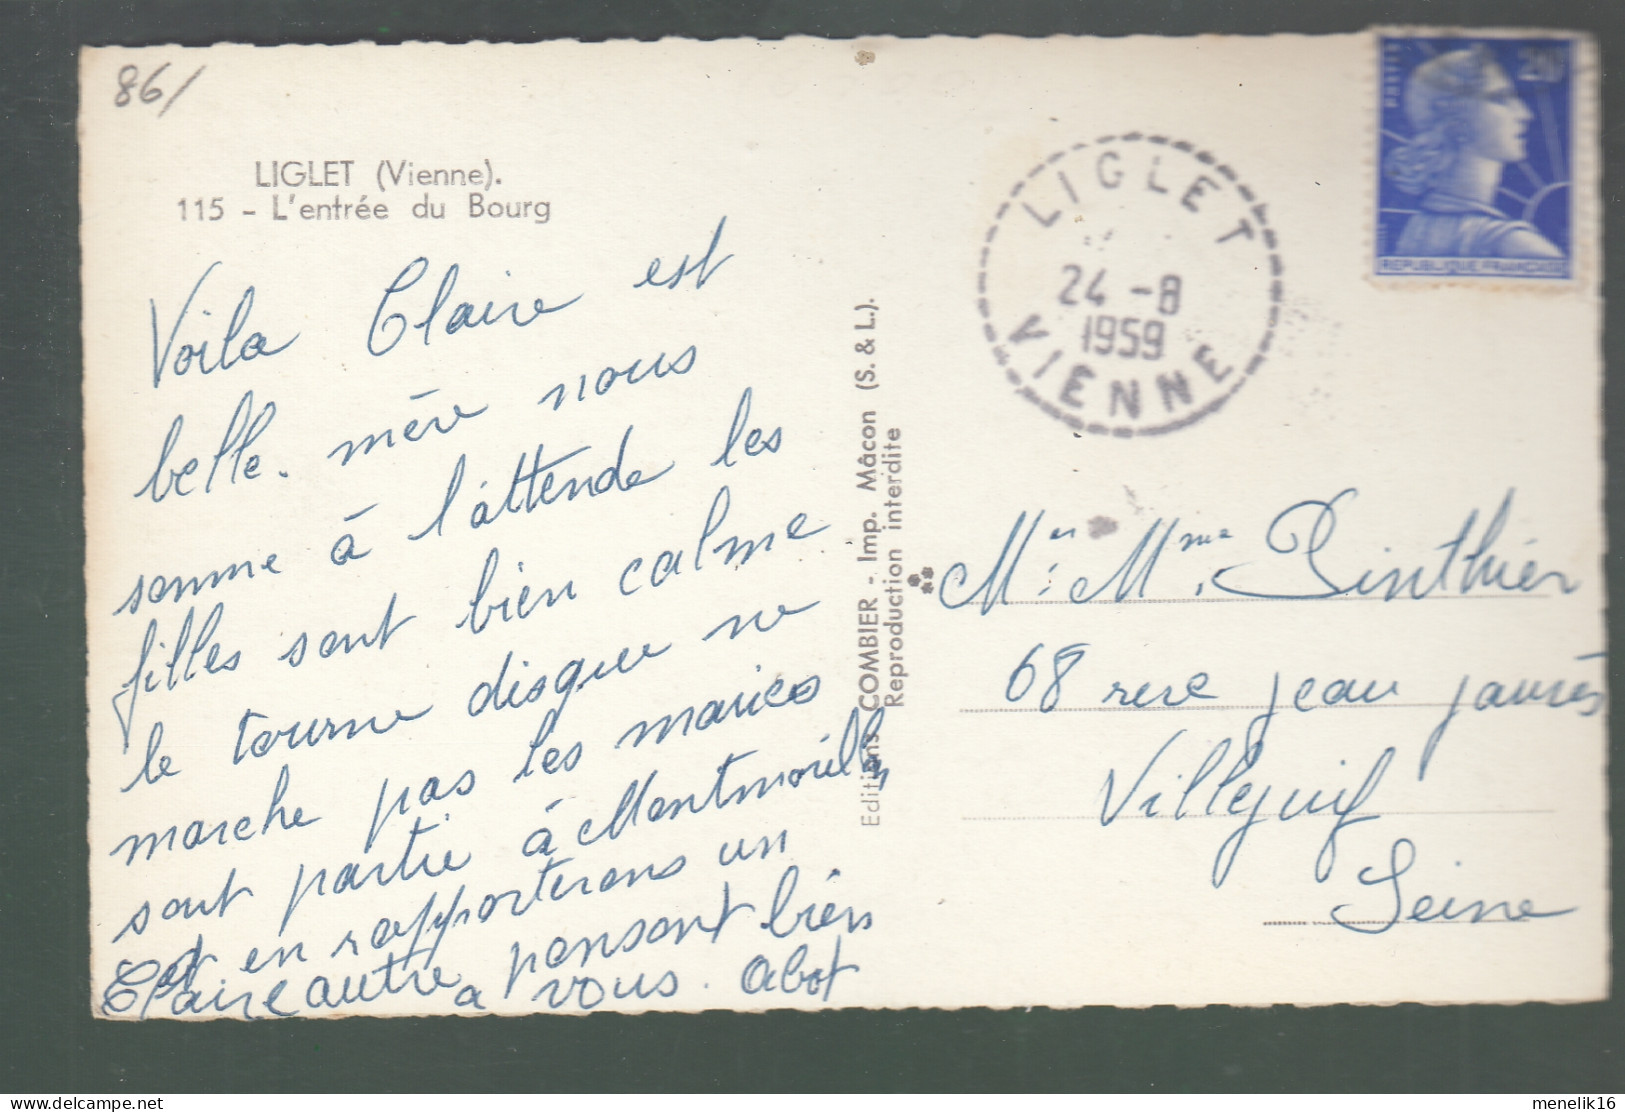 86/
LIGLET (Vienne).
115 - L'entrée du Bourg
Voila Claire est
belle-mère nous
somme à l'attende les
filles sont bien calme
le tourne disque ne
marche pas les maries
sont partie à Montmorillon
et en rapporterons un
autre pensont bien
a vous. abot
Claire
Editions COMBIER - Imp. Mâcon (S. & L.).
Reproduction interdite
LIGLET
24 -8
1959
VIENNE
POSTES
20F
REPUBLIQUE FRANÇAISE
Mr. Mme. Pinthier
68 rue jean jaurès
Villejuif
Seine
delcampe.net
menelik16